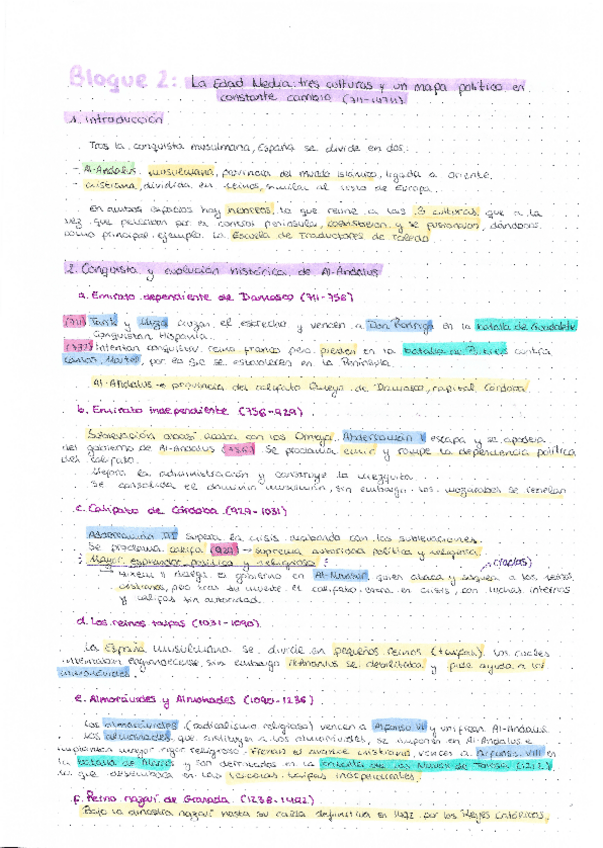 Bloque 2: La Edad Media: tres culturas y un mapa político en
constante cambio (711-1474)
1. Introducción
Tras la conquista musulmana, España se divide en dos:
- Al-Andalus musulmana, provincia del mundo islámico, ligada a Oriente.
- cristiana, dividida en reinos, similar al resto de Europa.
En ambos espacios hay la que reúne a las 3 culturas que a la
vez que peleaban por el control peninsular, coexistieron y se fusionaron, dándonos
como principal ejemplo la Escuela de Traductores de Toledo
2. Conquista y evolución histórica de Al-Andalus
a. Emirato dependiente de Damasco (711-756)
(711) Tarik y Muza cruzan el estrecho y vencen a Don Rodrigo en la batalla de Guadalete
Conquistan Hispania.
(732) Intentan conquistar reino franco pero pierden en la batalla de Poitiers contra
Carlos Martel, por lo que se establecen en la Península.
Al-Andalus = provincia del califato Omeya de Damasco, capital Córdoba
b. Emirato independiente (756-929)
Sublevación abasí acaba con los Omeya. Abderramán I escapa y se apodera
del gobierno de Al-Andalus (756). Se proclama emir y rompe la dependencia política
del califato.
Mejora la administración y construye la mezquita.
Se consolida el dominio musulmán, sin embargo los mozárabes se rebelan
c. Califato de Córdoba (929-1031)
Abderramán III supera la crisis acabando con las sublevaciones.
Se proclama califa (929) → suprema autoridad política y religiosa
Mayor esplendor político y religioso
el gobierno en Al-Mansur, quien ataca y saquea a los reinos
cristianos, pero tras su muerte el califato entra en crisis, con luchas internas
y califas sin autoridad.
d. Los reinos taifas (1031-1090)
La España musulmana se divide en pequeños reinos (taifas), los cuales
sin embargo se debilitaba y pide ayuda a los
almorávides.
e. Almorávides y Almohades (1090-1236)
Los almorávides (radicalismo religioso) vencen a Alfonso VI y unifican Al-Andalus
Los almohades que sustituyen a los almorávides, se imponen en Al-Andalus e
implantan mayor rigor religioso. Frenan el avance cristiano, vencen a Alfonso VIII en
la batalla de Alarcos y son derrotados en la batalla de las Navas de Tolosa (1212)
lo que desemboca en las taifas independientes.
f. Reino nazarí de Granada (1238-1492)
Bajo la dinastía nazarí hasta su caída definitiva en 1492 por los Reyes Católicos.